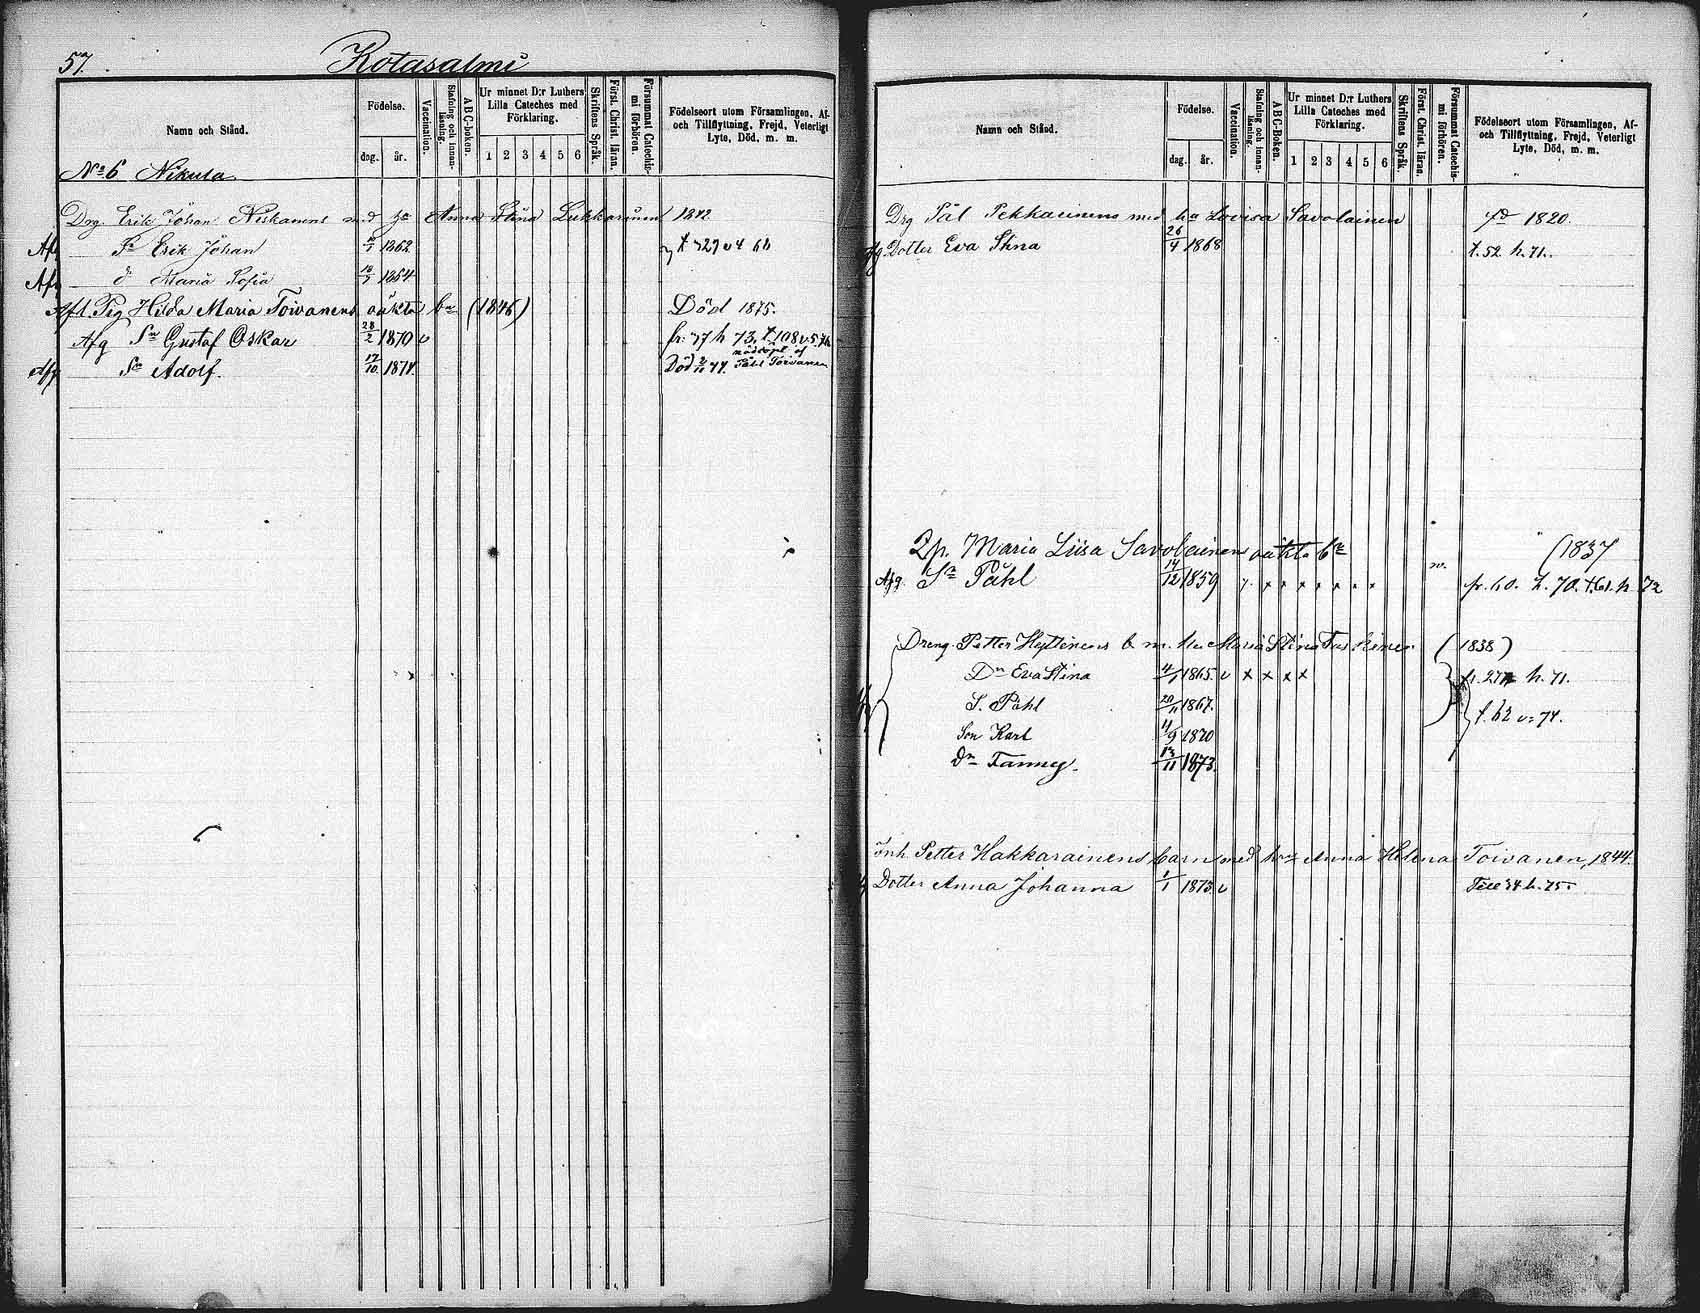 57.
Kotasalmi
Namn och Stånd.
Födelse.
dag.
år.
Vaccination.
Stafning och innan-läsning.
A B C-boken.
Ur minnet D:r Luthers Lilla Cateches med Förklaring.
1 2 3 4 5 6
Skriftens Språk.
Först. Christ. läran.
Försummat Catechis-mi förhören.
Födelseort utom Församlingen, Af- och Tillflyttning, Frejd, Veterligt Lyte, Död, m. m.
No 6 Nikula
Drg. Erik Johan Niskanens med Anna Stina Lukkarinen 1842
Sn Erik Johan 1862
Maria Sofia 18/7
Afl. Pig Hilda Maria Toivanens oäkta bn (1846) Död 1875.
Afg Sn Gustaf Oskar 28/2 1870 v fr. 77 h 73.
Afg Sn Adolf. 17/10 1874. Död 77. Påhl Toivanen
Namn och Stånd.
Födelse.
dag.
år.
Vaccination.
Stafning och innan-läsning.
A B C-Boken.
Ur minnet D:r Luthers Lilla Cateches med Förklaring.
1 2 3 4 5 6
Skriftens Språk.
Först Christ. läran.
Försummat Catechis-mi förhören.
Födelseort utom Församlingen, Af- och Tillflyttning, Frejd, Veterligt Lyte, Död, m. m.
Drg Pål Pekkarinens med ha Lovisa Savolainen fd 1820.
Dotter Eva Stina 26/4 1868 t. 52 h. 71.
2p. Maria Liisa Savolainens oäkta bn (1837
Afg. Sn Påhl 14/12 1859 x x x x x x x fr. 60. h. 70. t. 61. h. 72
Dreng. Petter b m. hu Maria Stina (1838)
Dn Eva Stina 4/1 1865. v x x x x fr. 277 h. 71.
S. Påhl 20/11 1867. t. 62 v. 74.
Son Karl 11/9 1870
Dn Fanny. 13/11 1873.
Inh. Petter Hakkarainens barn med hru Anna Helena Toivanen, 1844.
Dotter Anna Johanna 1/1 1873. v Till 34 h. 75